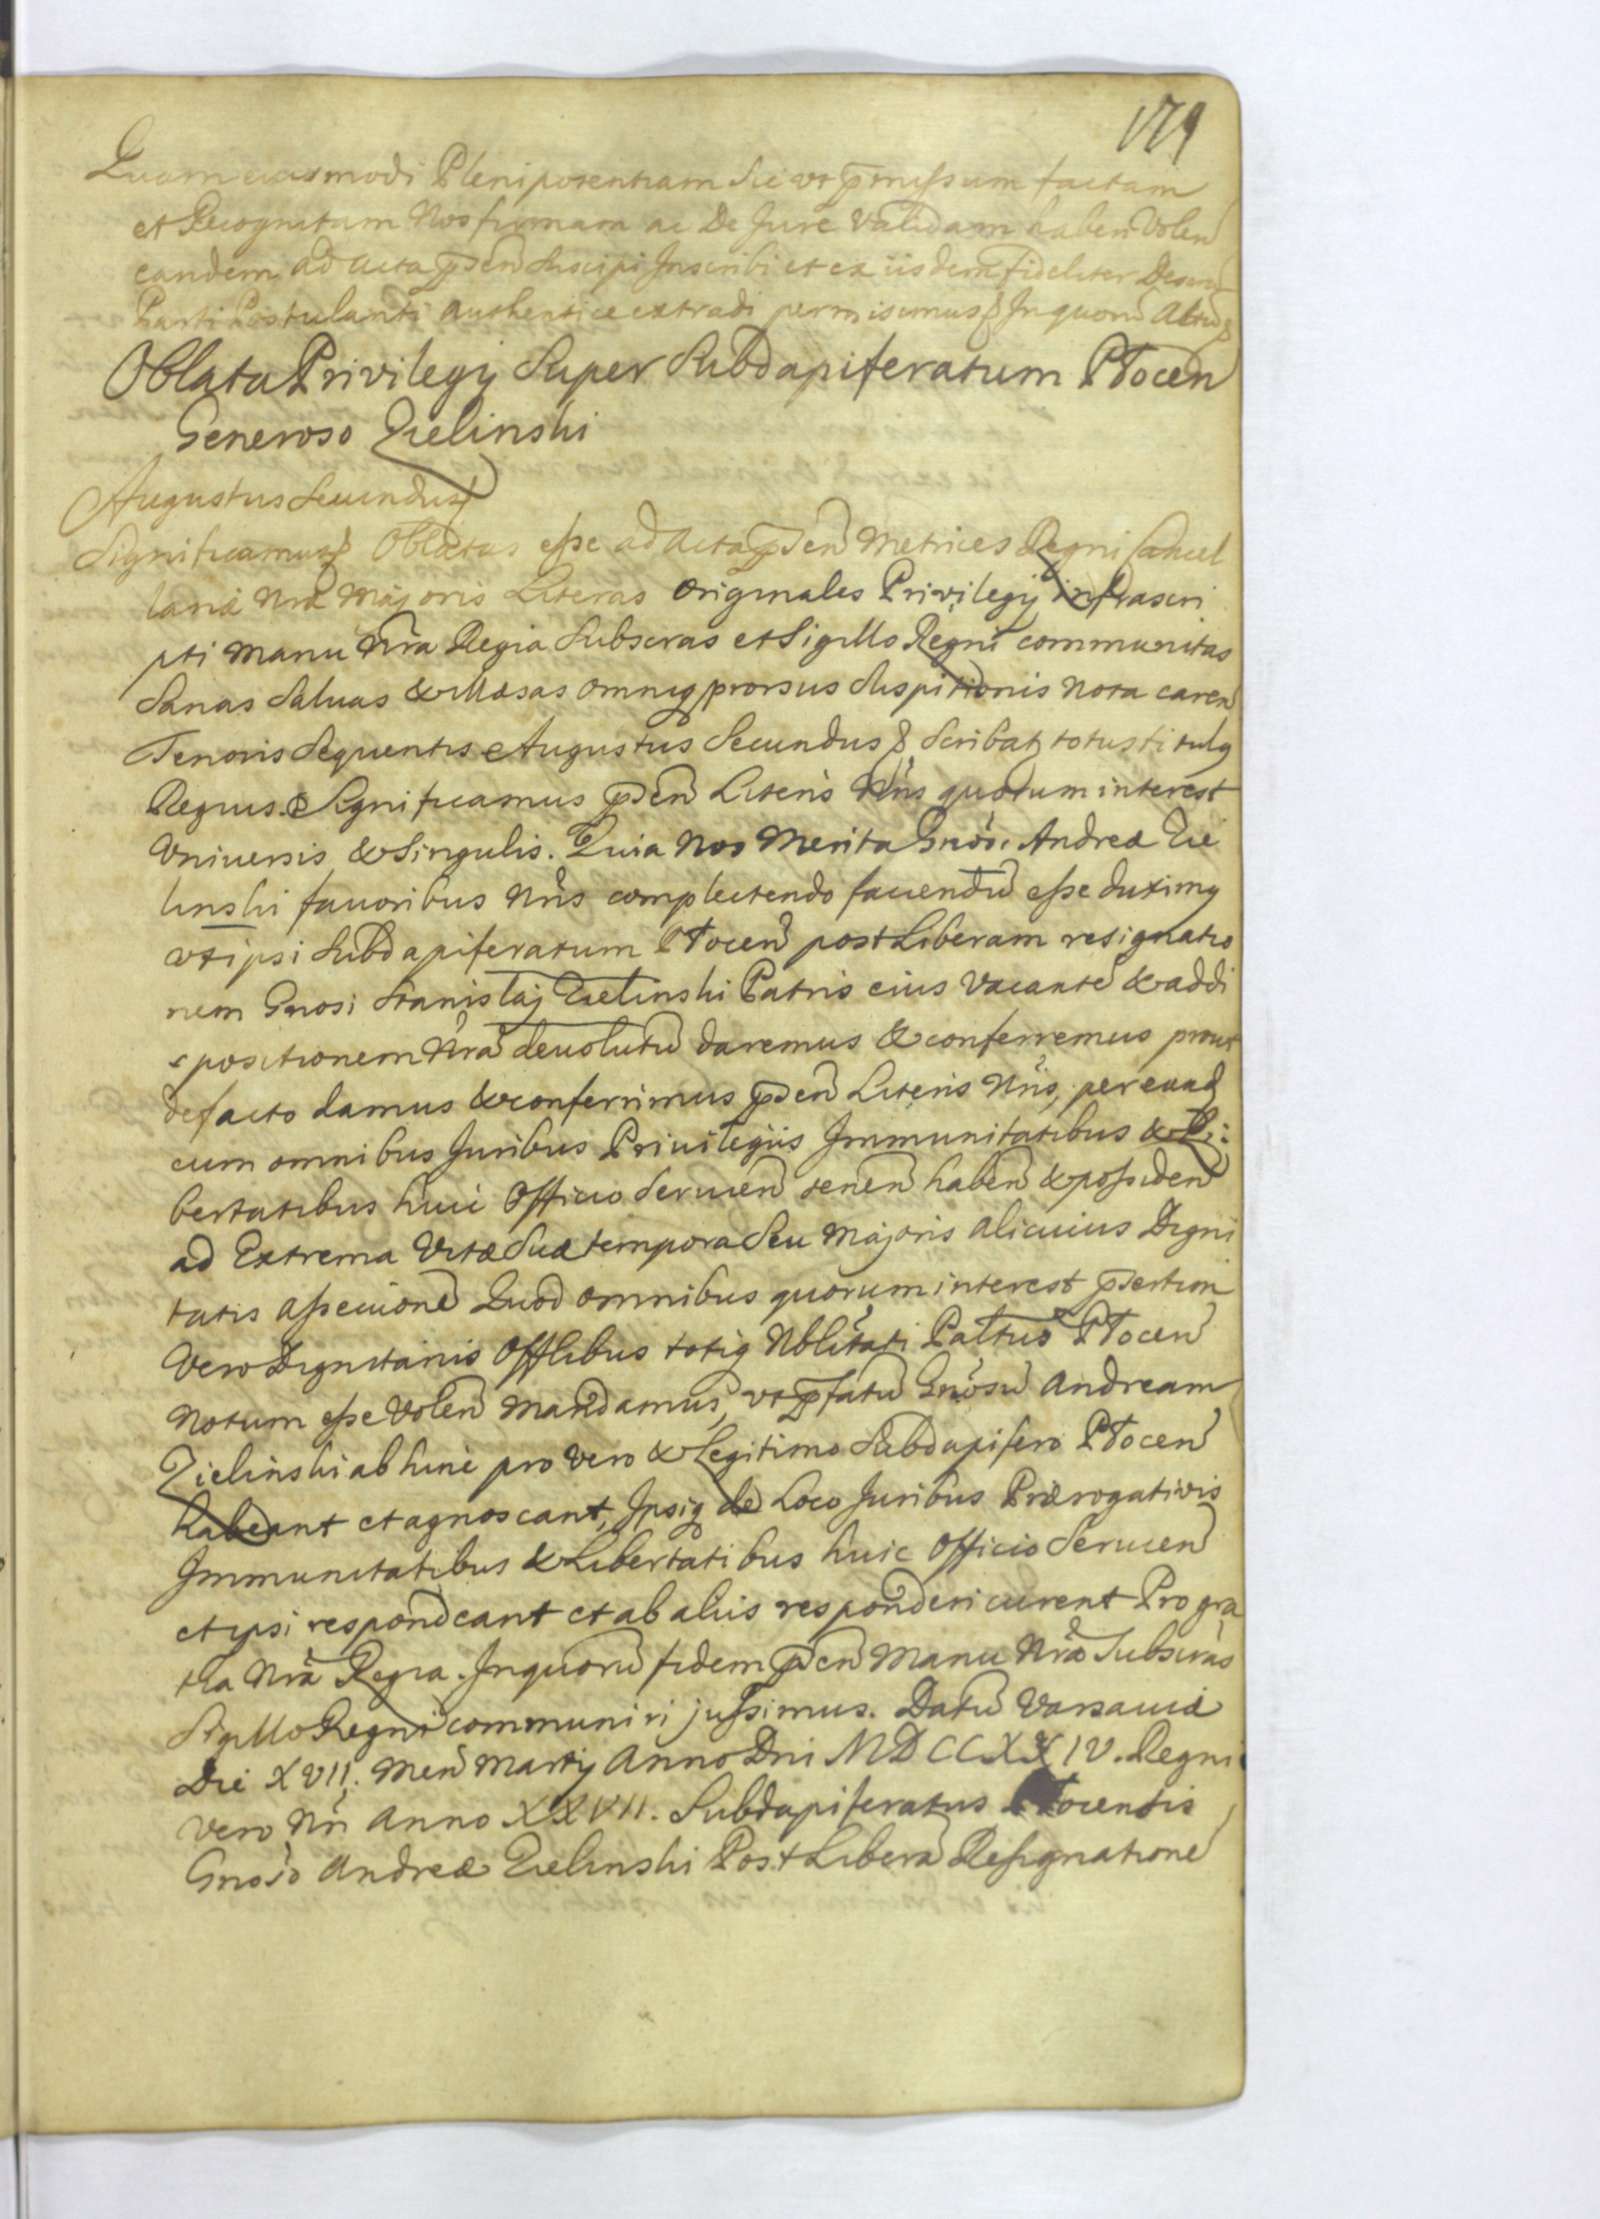 179
Quam eiusmodi Plenipotentiam sic vt p̃missum factam
et Recognitam Nos firmam ac De Jure Validam haberi Volen̄
eandem ad acta p̃sen̄ suscipi Inscribi et ex iisdem fideliter
Parti Postulanti authentice extradi permisimus In quorū
Oblata Privilegij Super Subdapiferatum Płocen̄
Generoso Zielinski
Augustus Secundus
Significamus Oblatas esse ad Acta p̃sen̄ Metrices Regni Cancel
lariæ Nrǣ Majoris Literas Originales Privilegij infrascri
pti Manu Nrā Regia Subscras et Sigillo Regni communitas
Sanas Saluas & Illæsas omniq prorsus Suspitionis Nota caren̄
Tenoris Sequentis Augustus Secundus Scribat totus titulq
Regius. Significamus p̃sen̄ Literis Nrīs quorum interest
Vniuersis & Singulis. Quia Nos Merita Gnosi Andreæ Zie
linski fauoribus Nrīs complectendo faciendū esse duximq
vt ipsi Subdapiferatum Płocen̄ post Liberam resignatio
nem Gnosi Stanislaj Zielinski Patris eius Vacantē & ad di
spositionem Nrām deuolutū daremus & conferremus prout
de facto damus & conferrimus p̃sen̄ Literis Nrīs, per eund
cum omnibus Juribus Priuilegijs Jmmunitatibus & Li:
bertatibus huic Officio Seruien̄ tenen̄ haben̄ & possiden̄
ad Extrema Vitæ Suæ tempora Seu Majoris alicuius Digni
tatis assecuionē Quod omnibus quorum interest p̃sertim
Vero Dignitariis Offlibus totiq Nblitati Paltus Płocen̄
Notum esse Volen̄ Mandamus, vt p̃fatū Gnosū Andream
Zielinski ab hinc pro vero & Legitimo Subdapifero Płocen̄
habeant et agnoscant, Jpsiq de Loco Juribus Prærogativis
Jmmunitatibus & Libertatibus huic Officio Seruien̄
et ipsi respondeant et ab aliis responderi curent Pro gra
tia Nrā Regia. Jn quorū fidem p̃sen̄ Manu Nrā Subscras
Sigillo Regni communiri jussimus. Datū Varsauiæ
Die XVII. Men̄ Martij Anno Dni MDCCXXIV. Regni
Vero Nrī Anno XXVII. Subdapiferatus Płocensis
Gnoso Andreæ Zielinski Post Liberā Resignationē